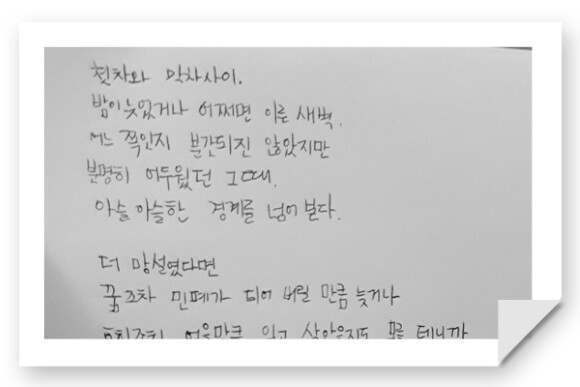 첫차와 막차사이.
밤이 늦었거나 어쩌면 이른 새벽.
어느 쪽인지 분간되진 않았지만
분명히 어두웠던 그때.
아슬아슬한 경계를 넘어 본다.
더 망설였다면
꿈조차 민폐가 되어 버릴 만큼 늦거나
잊고 살았을지도 모를 테니까